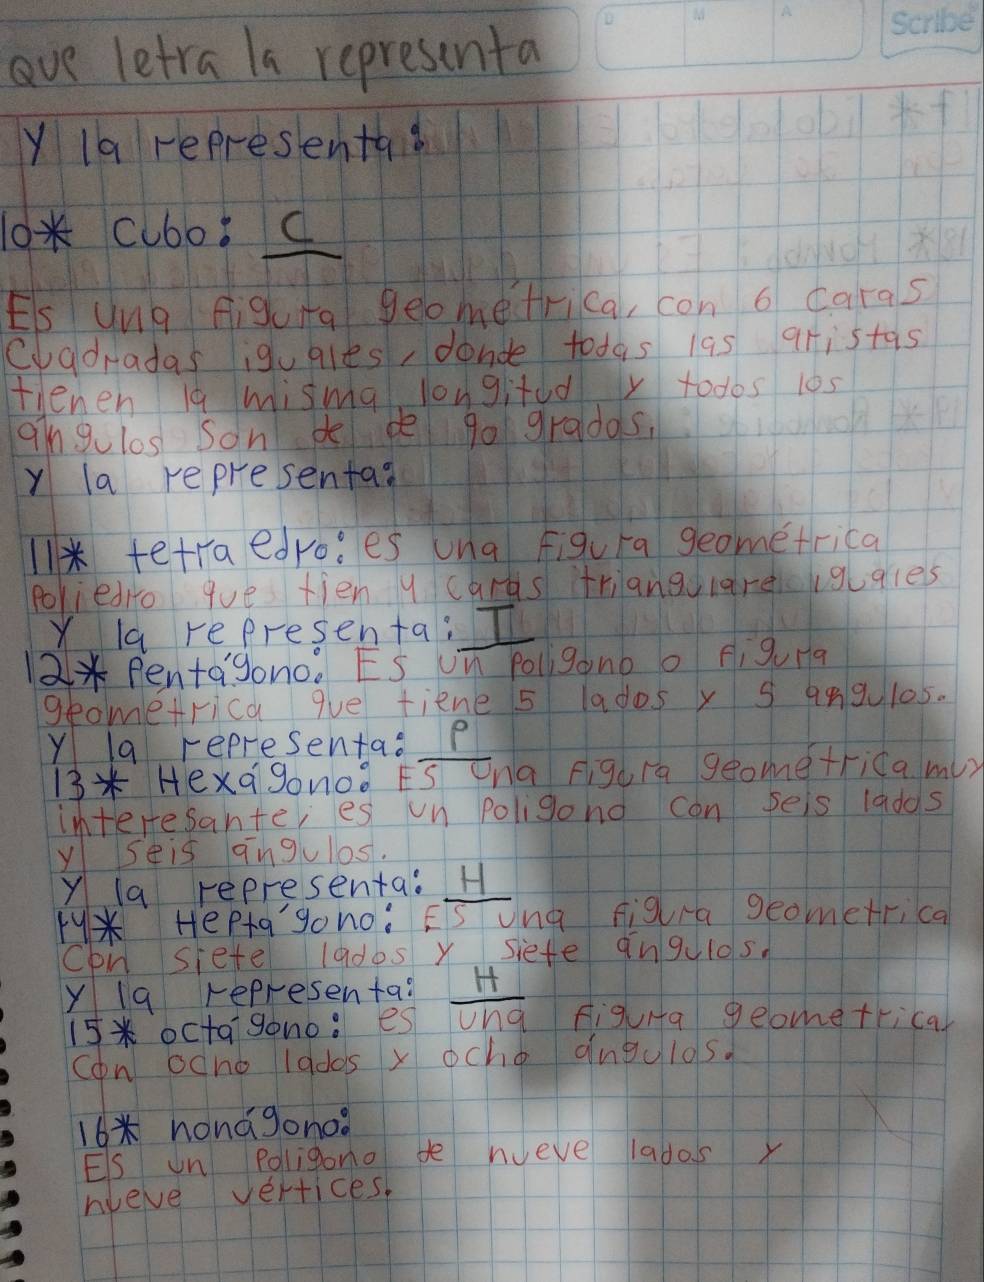 Que letra la representa
D M A
Scribe
y la representa:
10* Cubo: C
Es una figura geométrica, con 6 caras
cuadradas iguales, donde todas las aristas
tienen la misma longitud y todos los
angulos son de de 90 grados.
y la representa:
11* tetraedro: es una figura geométrica
poliedro que tien 4 caras triangulare iguales
y la representa: T
12* Pentágono: Es un poligono o figura
geométrica que tiene 5 lados y 5 angulos.
y la representa: P
13* Hexágono: Es una figura geométrica muy
interesante, es un poligono con seis lados
y seis ángulos.
y la representa: H
14* Heptágono: Es una figura geometrica
Con siete lados y siete ángulos.
y la representa: H
15* octágono: es una figura geometrica
con ocho lados y ocho ángulos.
16* nonágono:
Es un Poligono de nueve lados y
nueve vértices.